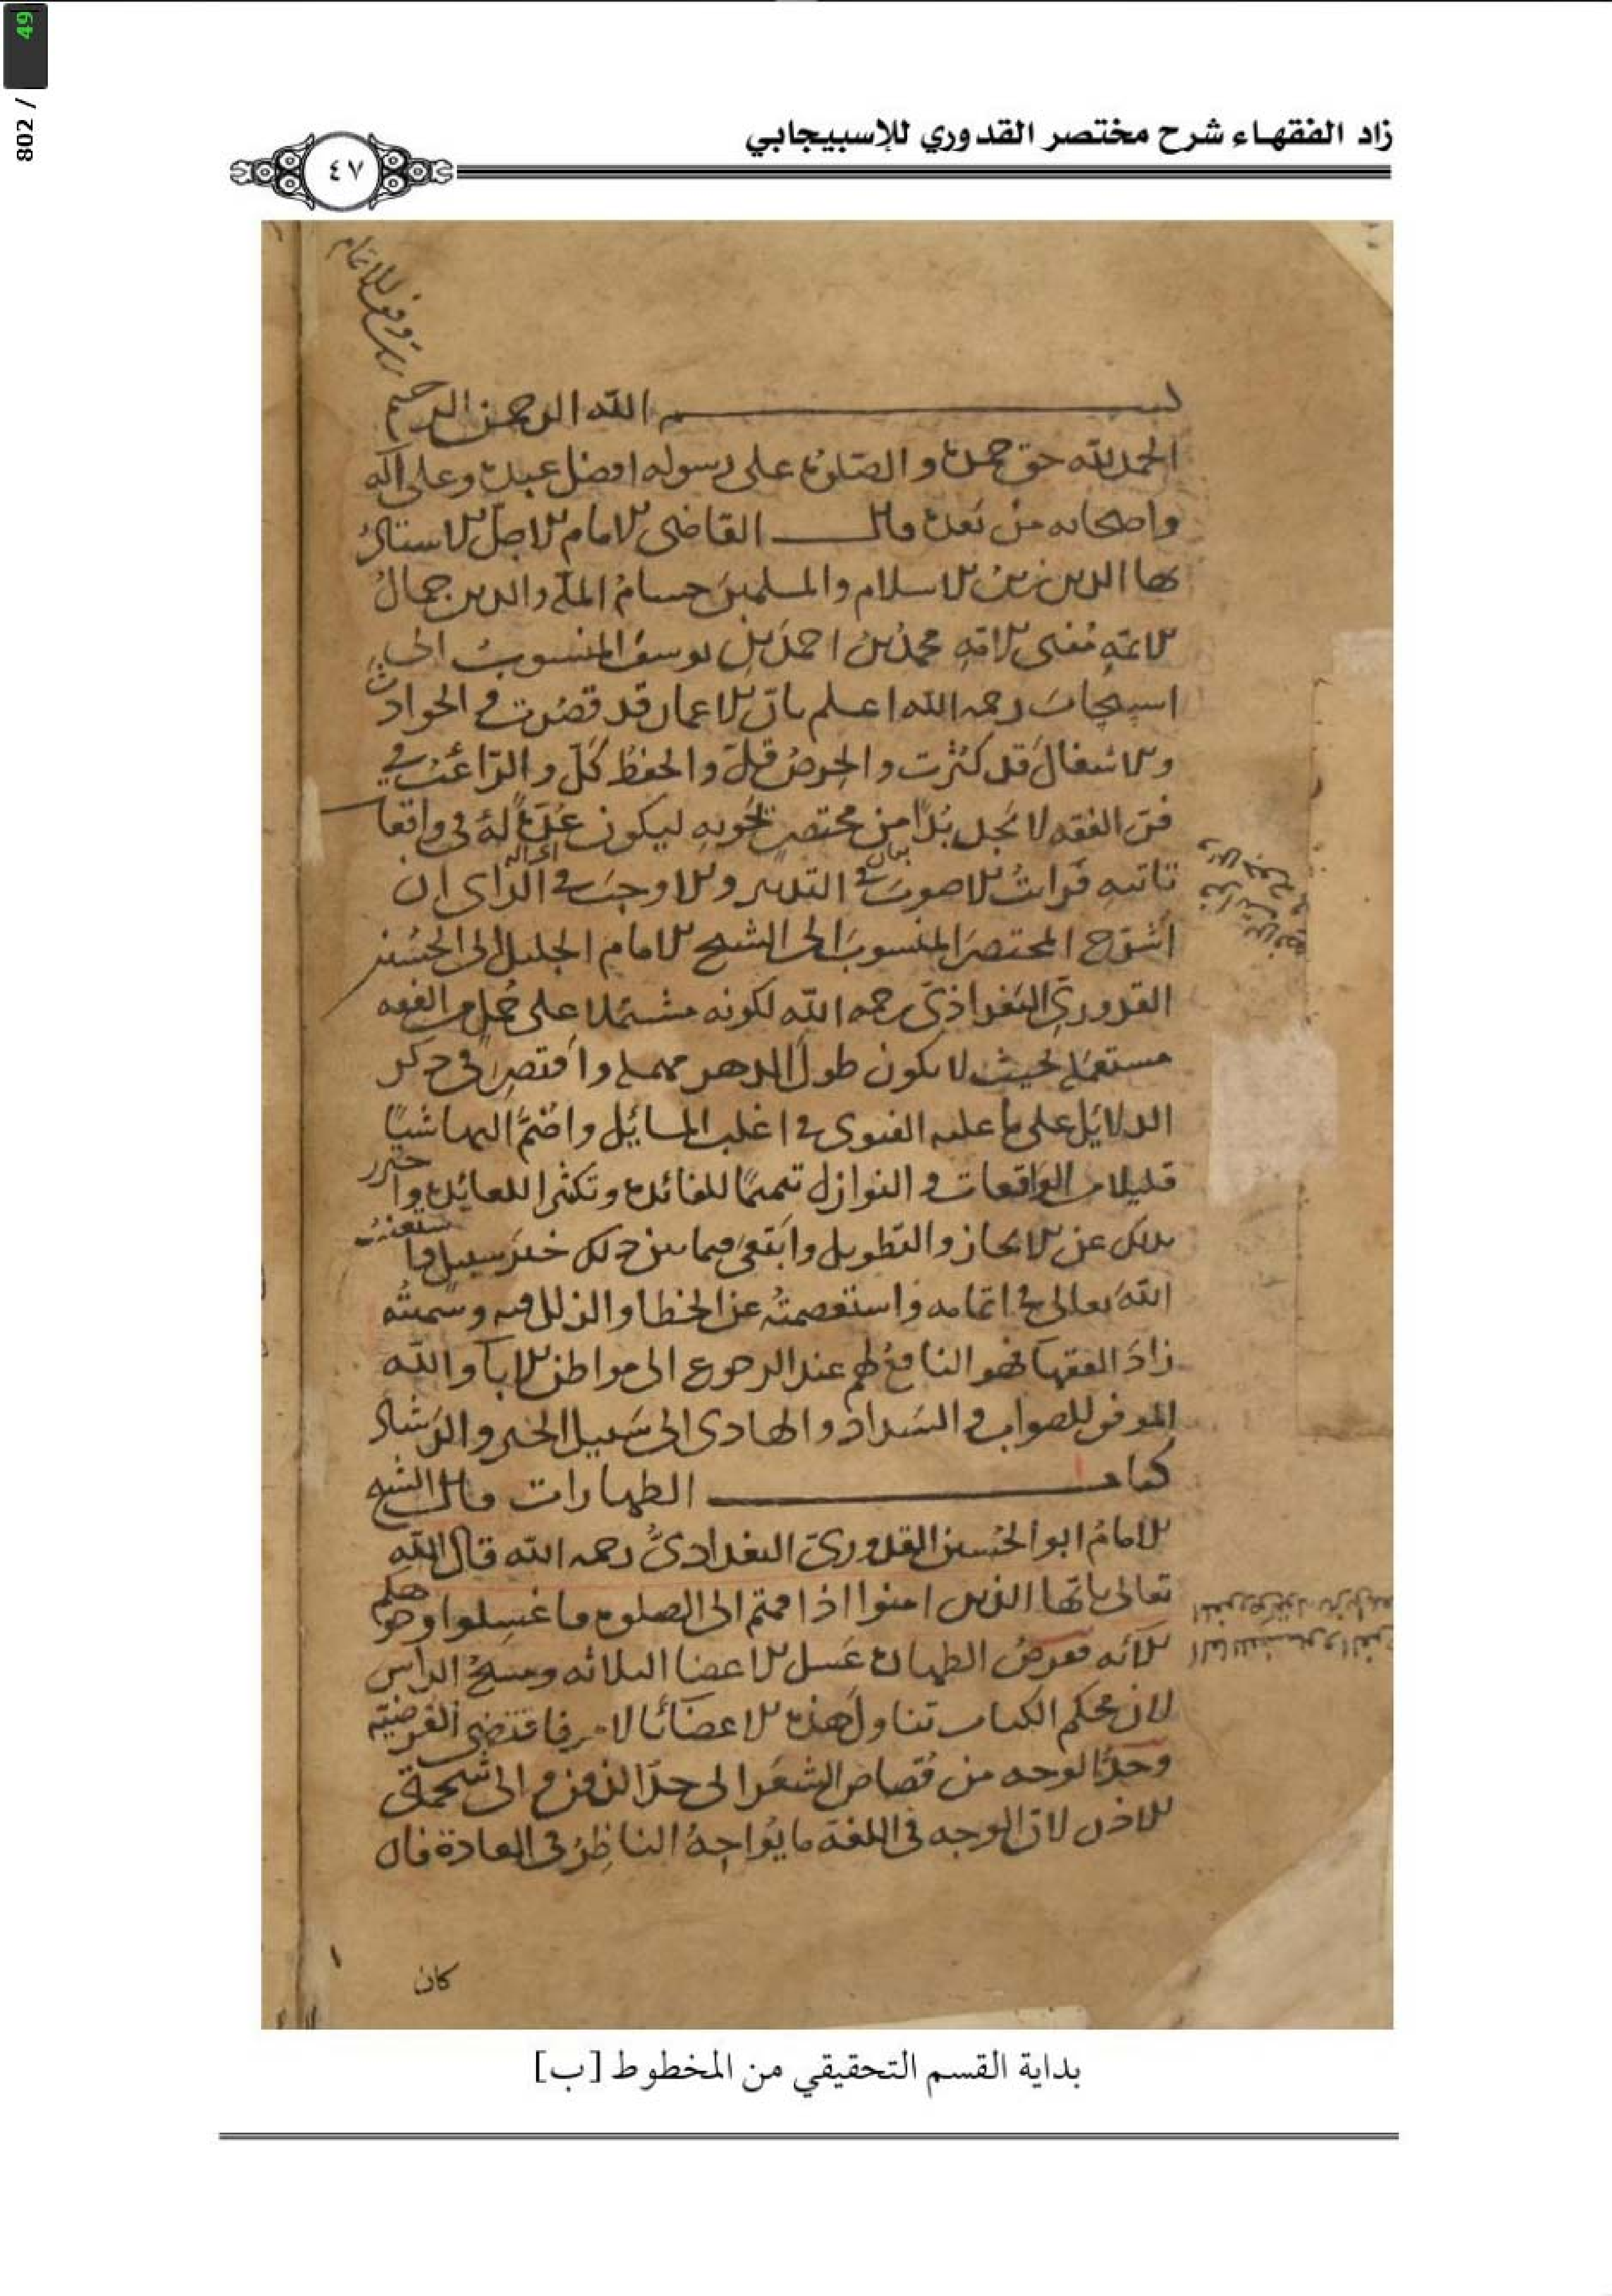 49
/ 802
زاد الفقهاء شرح مختصر القدوري للإسبيجابي
٤٧
رب وفق للاتمام
بسم الله الرحمن الرحيم
الحمد لله حق حمده والصلوة على رسوله افضل عبيده وعلى آله
واصحابه من بعده قال القاضى الامام الاجل الاستاذ
بها الدين زين الاسلام والمسلمين حسام الملة والدين جمال
الائمه مفتى الامه محمد بن احمد بن يوسف المنسوب الى
اسبيجاب رحمه الله اعلم بان الاعمار قد قصرت في الحوادث
والاشغال قد كثرت والحرص قل والحفظ كل والراغب في
فن الفقه لا يجد بدا من مختصر يحويه ليكون عدة له في واقعا
تاتيه فرايت الاصوب في التدبير والاوجب في الراى ان
اشرح المختصر المنسوب الى الشيخ الامام الجليل ابى الحسين
القدورى البغداذى رحمه الله لكونه مشتملا على جمل من الفقه
مستعملة بحيث لا يكون طول الدهر مهملة واقتصر في ذكر
الدلايل على ما عليه الفتوى في اغلب المسايل واضم اليها شيا
قليلا من الواقعات والنوازل تتميما للفائدة وتكثيرا للعائدة واحترز
بذلك عن الايجاز والتطويل وابتغى فيما بين ذلك خير سبيل فاستعنت
الله تعالى في اتمامه واستعصمته عن الخطا والزلل فيه وسميته
زاد الفقها فهو النافع لهم عند الرجوع الى مواطن الابا والله
الموفق للصواب والسداد والهادى الى سبيل الخير والرشاد
كتاب الطهارات قال الشيخ
الامام ابو الحسين القدورى البغدادى رحمه الله قال الله
تعالى يايها الذين امنوا اذا قمتم الى الصلوة فاغسلوا وجوهكم
الآيه ففرض الطهارة غسل الاعضا الثلاثه ومسح الراس
لان محكم الكتاب تناول هذه الاعضا بالامر فاقتضى الفرضية
وحد الوجه من قصاص الشعر الى حد الذقن والى شحمتى
الاذن لان الوجه في اللغة ما يواجه الناظر في العادة فان
كان
١
بداية القسم التحقيقي من المخطوط [ب]